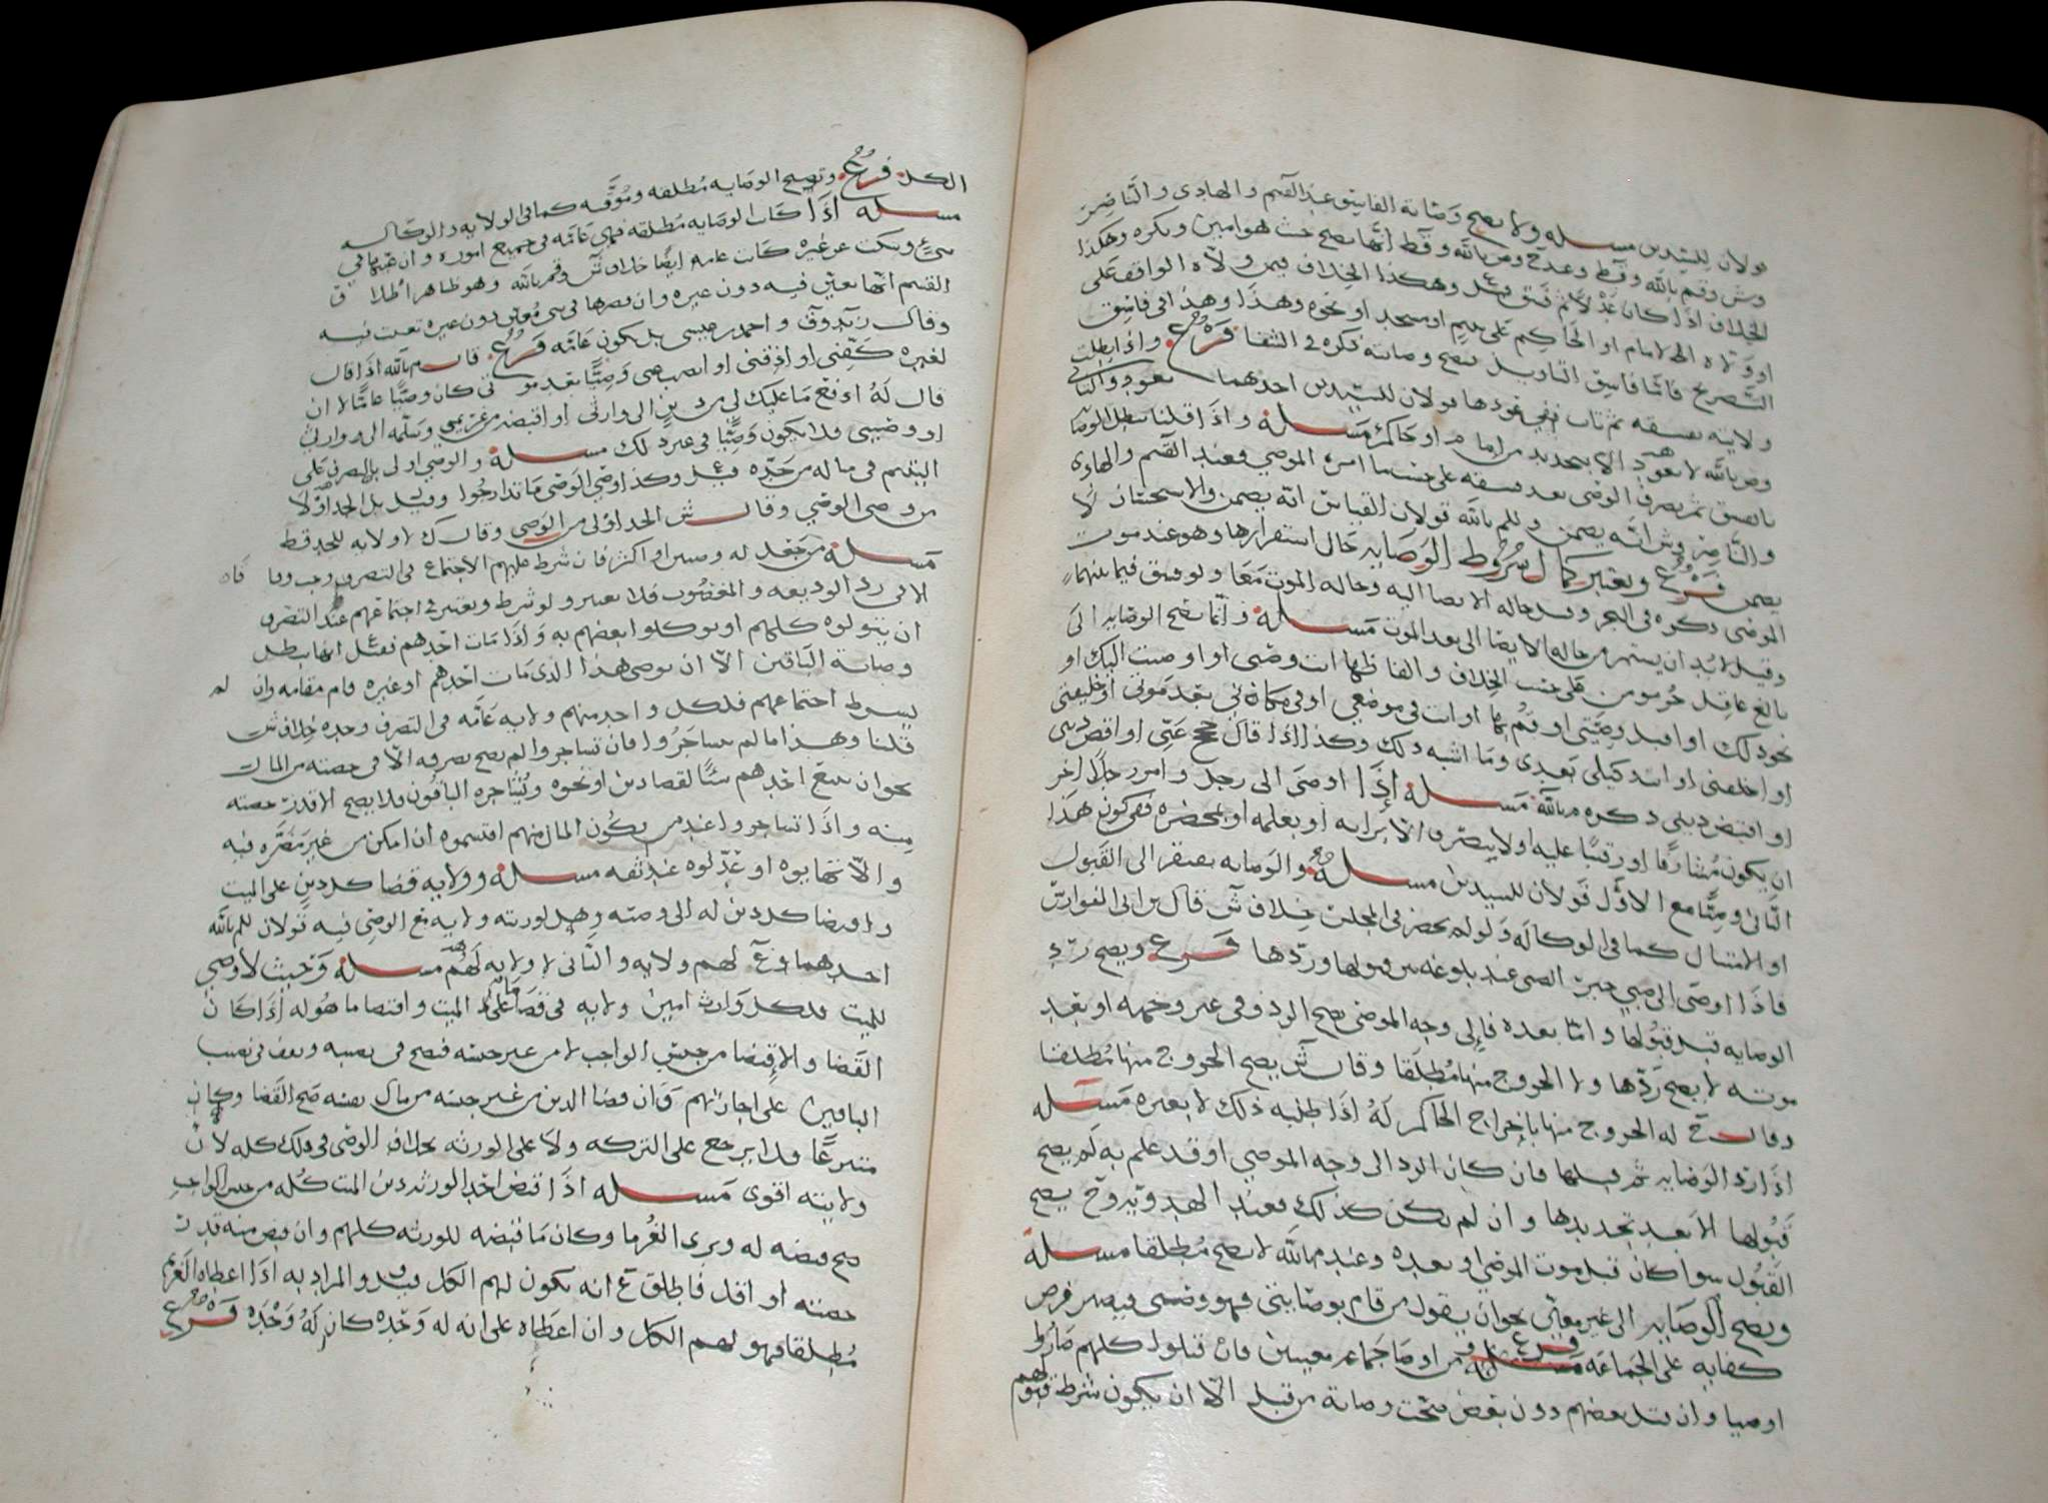 قولان للسيدين مسله ولا يصح وصاية الفاسق عند القسم والهادى والناصر
وش وقم بالله وقط وعند ح وص بالله وقط انها تصح حيث هو امين وتكره وهكذا
الخلاف اذا كان عدلا ثم فسق وهكذا الخلاف فيمن ولاه الواقف على
او ولاه الامام او الحاكم على يتيم او مسجد او نحوه وهذا وهذا فى فاسق
التصريح فاما فاسق التاويل فتصح وصايته ذكره فى الشفا فرع واذا بطلت
ولايته بفسقه ثم تاب ففى عودها قولان للسيدين احدهما تعود والثانى
وص بالله لا تعود الا بتجديد من امام او حاكم مسله واذا قلنا تبطل الوصاية
بالفسق ثم تصرف الوصى بعد فسقه على حسب ما امره الموصي فعند القسم والهادى
والناصر وش انه يضمن وللم بالله قولان القياس انه يضمن والاستحسان لا
يضمن فرع ويعتبر كمال شروط الوصايه حال استقرارها وهو عند موت
الموصى ذكره فى البحر وقيل حاله الايصا اليه وحاله الموت معا ولو فسق فيما بينهما
وقيل لا بد ان يستمر من حاله الايصا الى بعد الموت مسله وانما تصح الوصايه الى
بالغ عاقل حر مومن على حسب الخلاف والفاظها انت وصى او اوصيت اليك او
نحو ذلك او انفذ وصيتى او قم بها او انت فى موضعي او فى مكانى بعد موتى او خليفتى
او اخلفنى او انت وكيلى بعدى وما اشبه ذلك وكذا اذا قال حج عنى او اقض دينى
او اقتض دينى ذكره م بالله مسله اذا اوصى الى رجل وامر رجلا اخر
ان يكون مشارفا او رقيبا عليه او لا يتصرف الا برايه او بعلمه او بمحضره فهل يكون هذا
الثانى وصيا مع الاول قولان للسيدين مسله والوصايه تفتقر الى القبول
او الامتثال كما فى الوكاله ولو لم يحضر فى المجلس خلاف ش قال بن ابى الفوارس
فاذا اوصى الى صبى خير الصبى عند بلوغه بين قبولها وردها فرع ويصح رد
الوصايه قبل قبولها واما بعده فالى وجه الموصى يصح الرد وفى غير وجهه او بعد
موته لا يصح ردها ولا الخروج منها مطلقا وقال ش يصح الخروج منها مطلقا
وقال ح له الخروج منها باخراج الحاكم له اذا طلبه ذلك لا بغيره مسله
اذا رد الوصايه ثم قبلها فان كان الرد الى وجه الموصي او قد علم به لم يصح
قبولها الا بعد تجديدها وان لم يكن كذلك فعند الهد وقيد وح يصح
القبول سوا كان قبل موت الموصي او بعده وعند م بالله لا يصح مطلقا مسله
ويصح الوصايه الى غير معين نحو ان يقول من قام بوصايتى فهو وصى ويصير فرض
كفايه على الجماعه فرع ومن اوصا جماعه معينين فان قبلوا كلهم صاروا
اوصيا وان قبل بعضهم دون بعض صحت وصاية من قبل الا ان يكون شرط قبولهم
الكل فرع وتصح الوصايه مطلقه وموقته كما فى الولايه والوكاله
مسله اذا كانت الوصايه مطلقه فهى عامه فى جميع اموره وان عينها في
شي وسكت عن غيره كانت عامه ايضا خلاف ش وقم بالله وهو ظاهر اطلاق
القسم انها تعين فيه دون غيره وان قصرها فى شي معين دون غيره تعينت فيه
وقال زيد وق واحمد بن عيسى بل يكون عامه فرع قال م بالله اذا قال
لغيره كفنى او ادفنى او انصب وصيا بعد موتى كان وصيا عاما لا ان
قال له ادفع ما عليك لى من دين الى وارثى او اقبضه من غريمى وسلمه الى وارثى
او وصيى فلا يكون وصيا فى غير ذلك مسله والوصي اولى بالتصرف على
اليتيم فى ماله من جده وكذا وصي الوصى ما تدارجوا وقيل بل الجد اولا
من وصى الوصي وقال ش الجد اولى من الوصى وقال ك لا ولايه للجد قط
مسله من جعل له وصيين او اكثر فان شرط عليهم الاجتماع فى التصرف وجب وفاقا
الا فى رد الوديعه والمغصوب فلا يعتبر ولو شرط ويعتبر فى اجتماعهم عند التصرف
ان يتولوه كلهم او يوكلوا بعضهم به واذا مات احدهم فقيل انها تبطل
وصاية الباقين الا ان يوصى هذا الذى مات احدهم او غيره قام مقامه وان لم
يشرط اجتماعهم فلكل واحد منهم ولايه عامه فى التصرف وحده خلاف ش
قلنا وهذا ما لم يتشاجروا فان تشاجروا لم يصح تصرفه الا فى حصته من المال
نحو ان يبيع احدهم شيا لقضا دين او نحوه ويشاجره الباقون فلا يصح الا قدر حصته
منه واذا تشاجروا عند من يكون المال منهم اقتسموه ان امكن من غير مضره فيه
والا تهايوه او عدلوه عند ثقه مسله وولايه قضا كل دين على الميت
واقتضا كل دين له الى وصيه وهل لورثته ولايه مع الوصى فيه قولان للم بالله
احدهما وع لهم ولايه والثانى لا ولايه لهم مسله وحيث لا وصي
للميت فلكل وارث امين ولايه فى قضا ما على الميت واقتضا ما هو له اذا كان
القضا والاقتضا من جنس الواجب لا من غير جنسه فيصح فى نصيبه ويقف فى نصيب
الباقين على اجازتهم وان قضا الدين من غير جنسه من مال نفسه صح القضا وكان
متبرعا فلا يرجع على التركه ولا على الورثه بخلاف الوصى فى ذلك كله لان
ولايته اقوى مسله اذا قبض احد الورثه دين الميت كله من جنس الواجب
صح قبضه له وبرى الغرما وكان ما قبضه للورثه كلهم وان قبض منه قدر
حصته او اقل فاطلق ع انه يكون لهم الكل قيل والمراد به اذا اعطاه الغريم
مطلقا فهو لهم الكل وان اعطاه على انه له وحده كان له وحده فرع